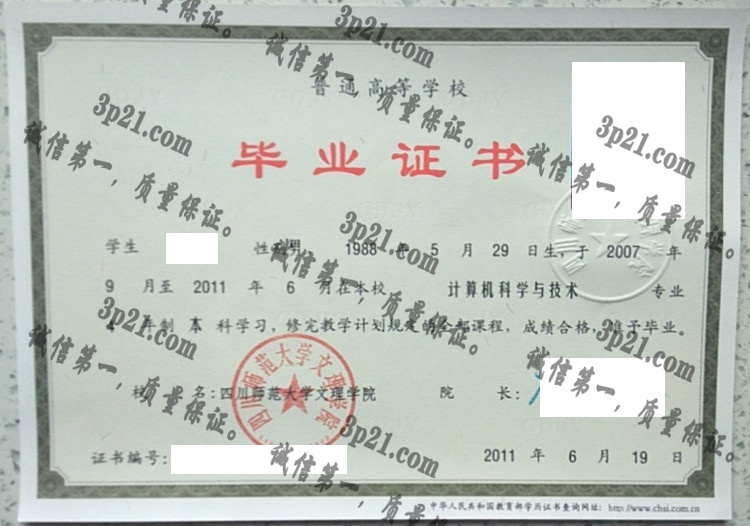 普通高等学校
毕业证书
学生 性别男 1988 年 5 月 29 日生，于 2007 年
9 月至 2011 年 6 月在本校 计算机科学与技术 专业
4 年制 本 科学习，修完教学计划规定的全部课程，成绩合格，准予毕业。
校 名：四川师范大学文理学院 院 长：
证书编号： 2011 年 6 月 19 日
中华人民共和国教育部学历证书查询网址：http://www.chsi.com.cn
四川师范大学文理学院
3p21.com
诚信第一，质量保证。
3p21.com
诚信第一，质量保证。
3p21.com
诚信第一，质量保证。
3p21.com
诚信第一，质量保证。
3p21.com
诚信第一，质量保证。
3p21.com
诚信第一，质量保证。
3p21.com
诚信第一，质量保证。
3p21.com
诚信第一，质量保证。
3p21.com